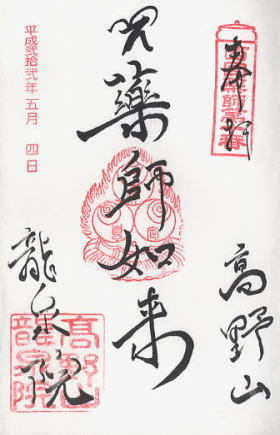 奉拝
高野山
藥師如来
龍泉院
高野山
龍泉院
平成弐拾弐年五月四日